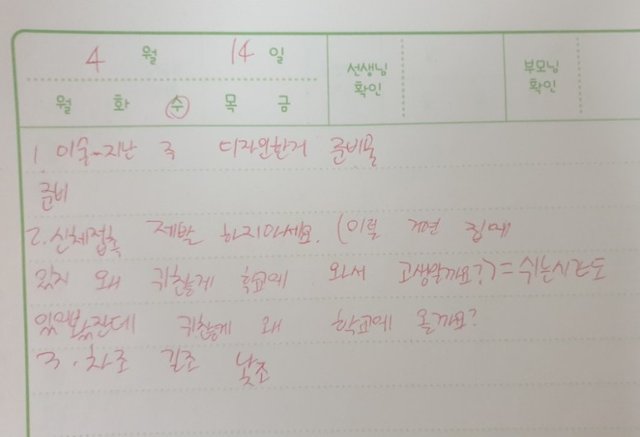 4 월 14 일
월 화 수 목 금
선생님 확인
부모님 확인
1. 미술-지난 주 디자인한거 준비물
준비
2. 신체접촉 제발 하지마세요. (이럴 거면 집에
있지 왜 귀찮게 학교에 와서 고생할까요?) = 쉬는시간도
귀찮게 왜 학교에 올까요?
3. 차조 길조 낮조